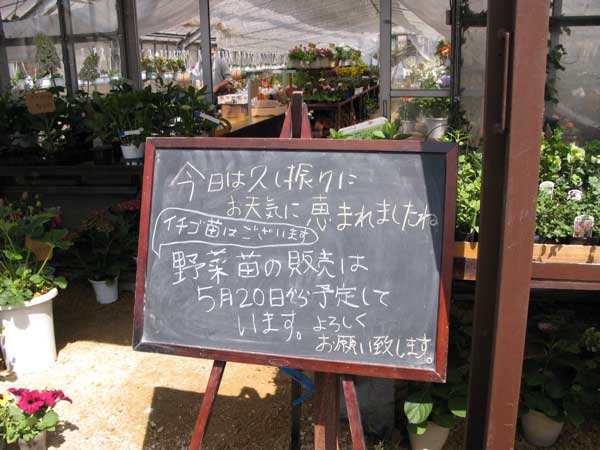 今日は久し振りに
お天気に恵まれましたね
イチゴ苗はございます
野菜苗の販売は
5月20日から予定して
います。よろしく
お願い致します。